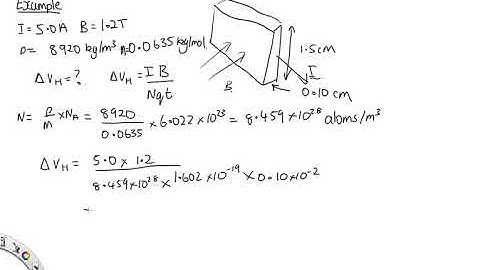 Example
I = 5.0A B = 1.2T
ρ = 8920 kg/m³ m=0.0635 kg/mol.
1.5cm
I
B
0.10 cm
ΔV_H = ? ΔV_H = IB/Nqt
N = ρ/m × N_A = 8920/0.0635 × 6.022×10²³ = 8.459×10²⁸ atoms/m³
ΔV_H = 5.0 × 1.2/8.459×10²⁸ × 1.602×10⁻¹⁹ × 0.10×10⁻²